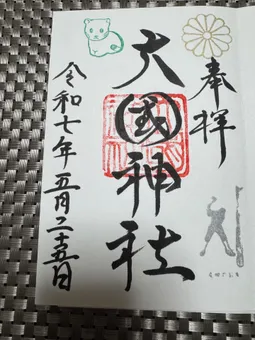 奉拝
大國神社
令和七年五月二十五日